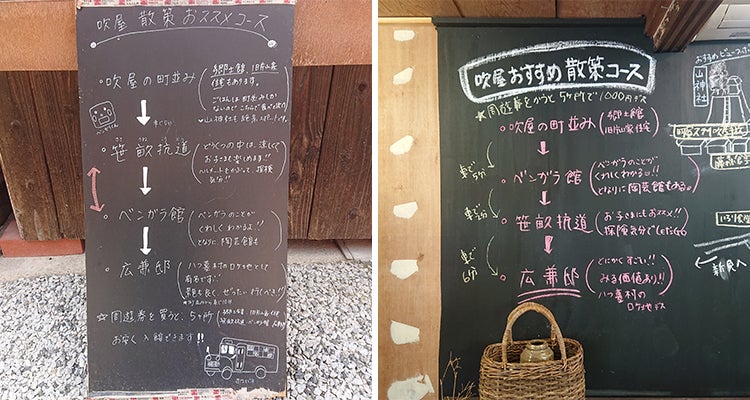 吹屋 散策 おススメコース
・吹屋の町並み
郷土館、旧片山家
住宅もあります。
ごはんは町並みしか
ないのでこちらで食べて
山神社も
・笹畝坑道
どうくつの中は、涼しくて
お子さまも楽しめます!!
ヘルメットをかぶって、探検
気分!!
・ベンガラ館
ベンガラのことが
くわしくわかるよ!!
となりに陶芸館も
・広兼邸
八つ墓村のロケ地として
有名です!!
景色も良く、ぜったい行くべき!!
☆周遊券を買うと、5ヶ所
お安く入館できます!!
吹屋おすすめ散策コース
☆周遊券をかうと5ヶ所で1000円デス
・吹屋の町並み
郷土館
旧片山家住宅
車で
5分
・ベンガラ館
ベンガラのことが
くわしくわかるョ!!
となりに陶芸館もある。
車で
2分
・笹畝坑道
お子さまにもおススメ!!
探険気分でLet'sGO
車で
6分
・広兼邸
とにかくすごい!!
みる価値あり!!
八つ墓村の
ロケ地デス
山神社